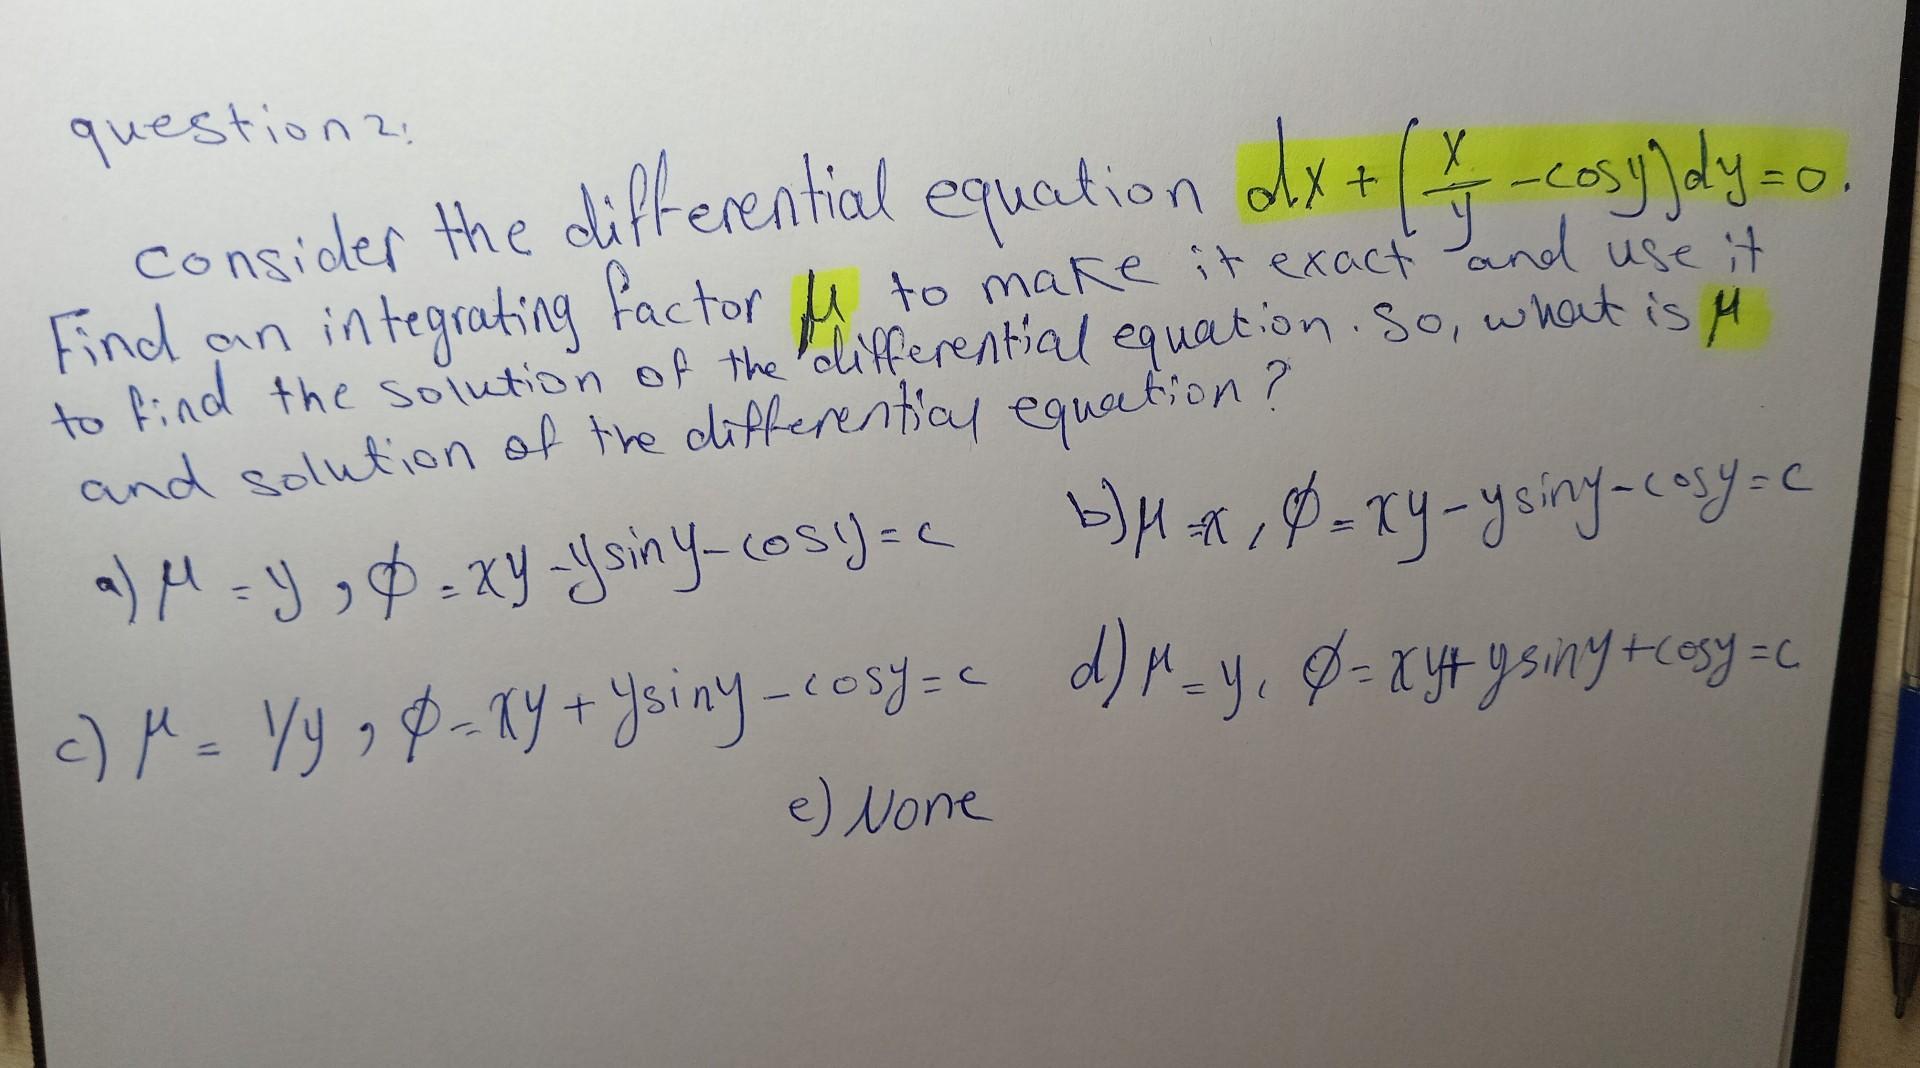 question 2:
Consider the differential equation dx + (x/y - cosy)dy = 0.
Find an integrating factor μ to make it exact and use it
to find the solution of the differential equation. So, what is μ
and solution of the differential equation?
a) μ = y, ϕ = xy - ysiny - cosy = c b) μ = x, ϕ = xy - ysiny - cosy = c
c) μ = 1/y, ϕ = xy + ysiny - cosy = c d) μ = y, ϕ = xy + ysiny + cosy = c
e) None